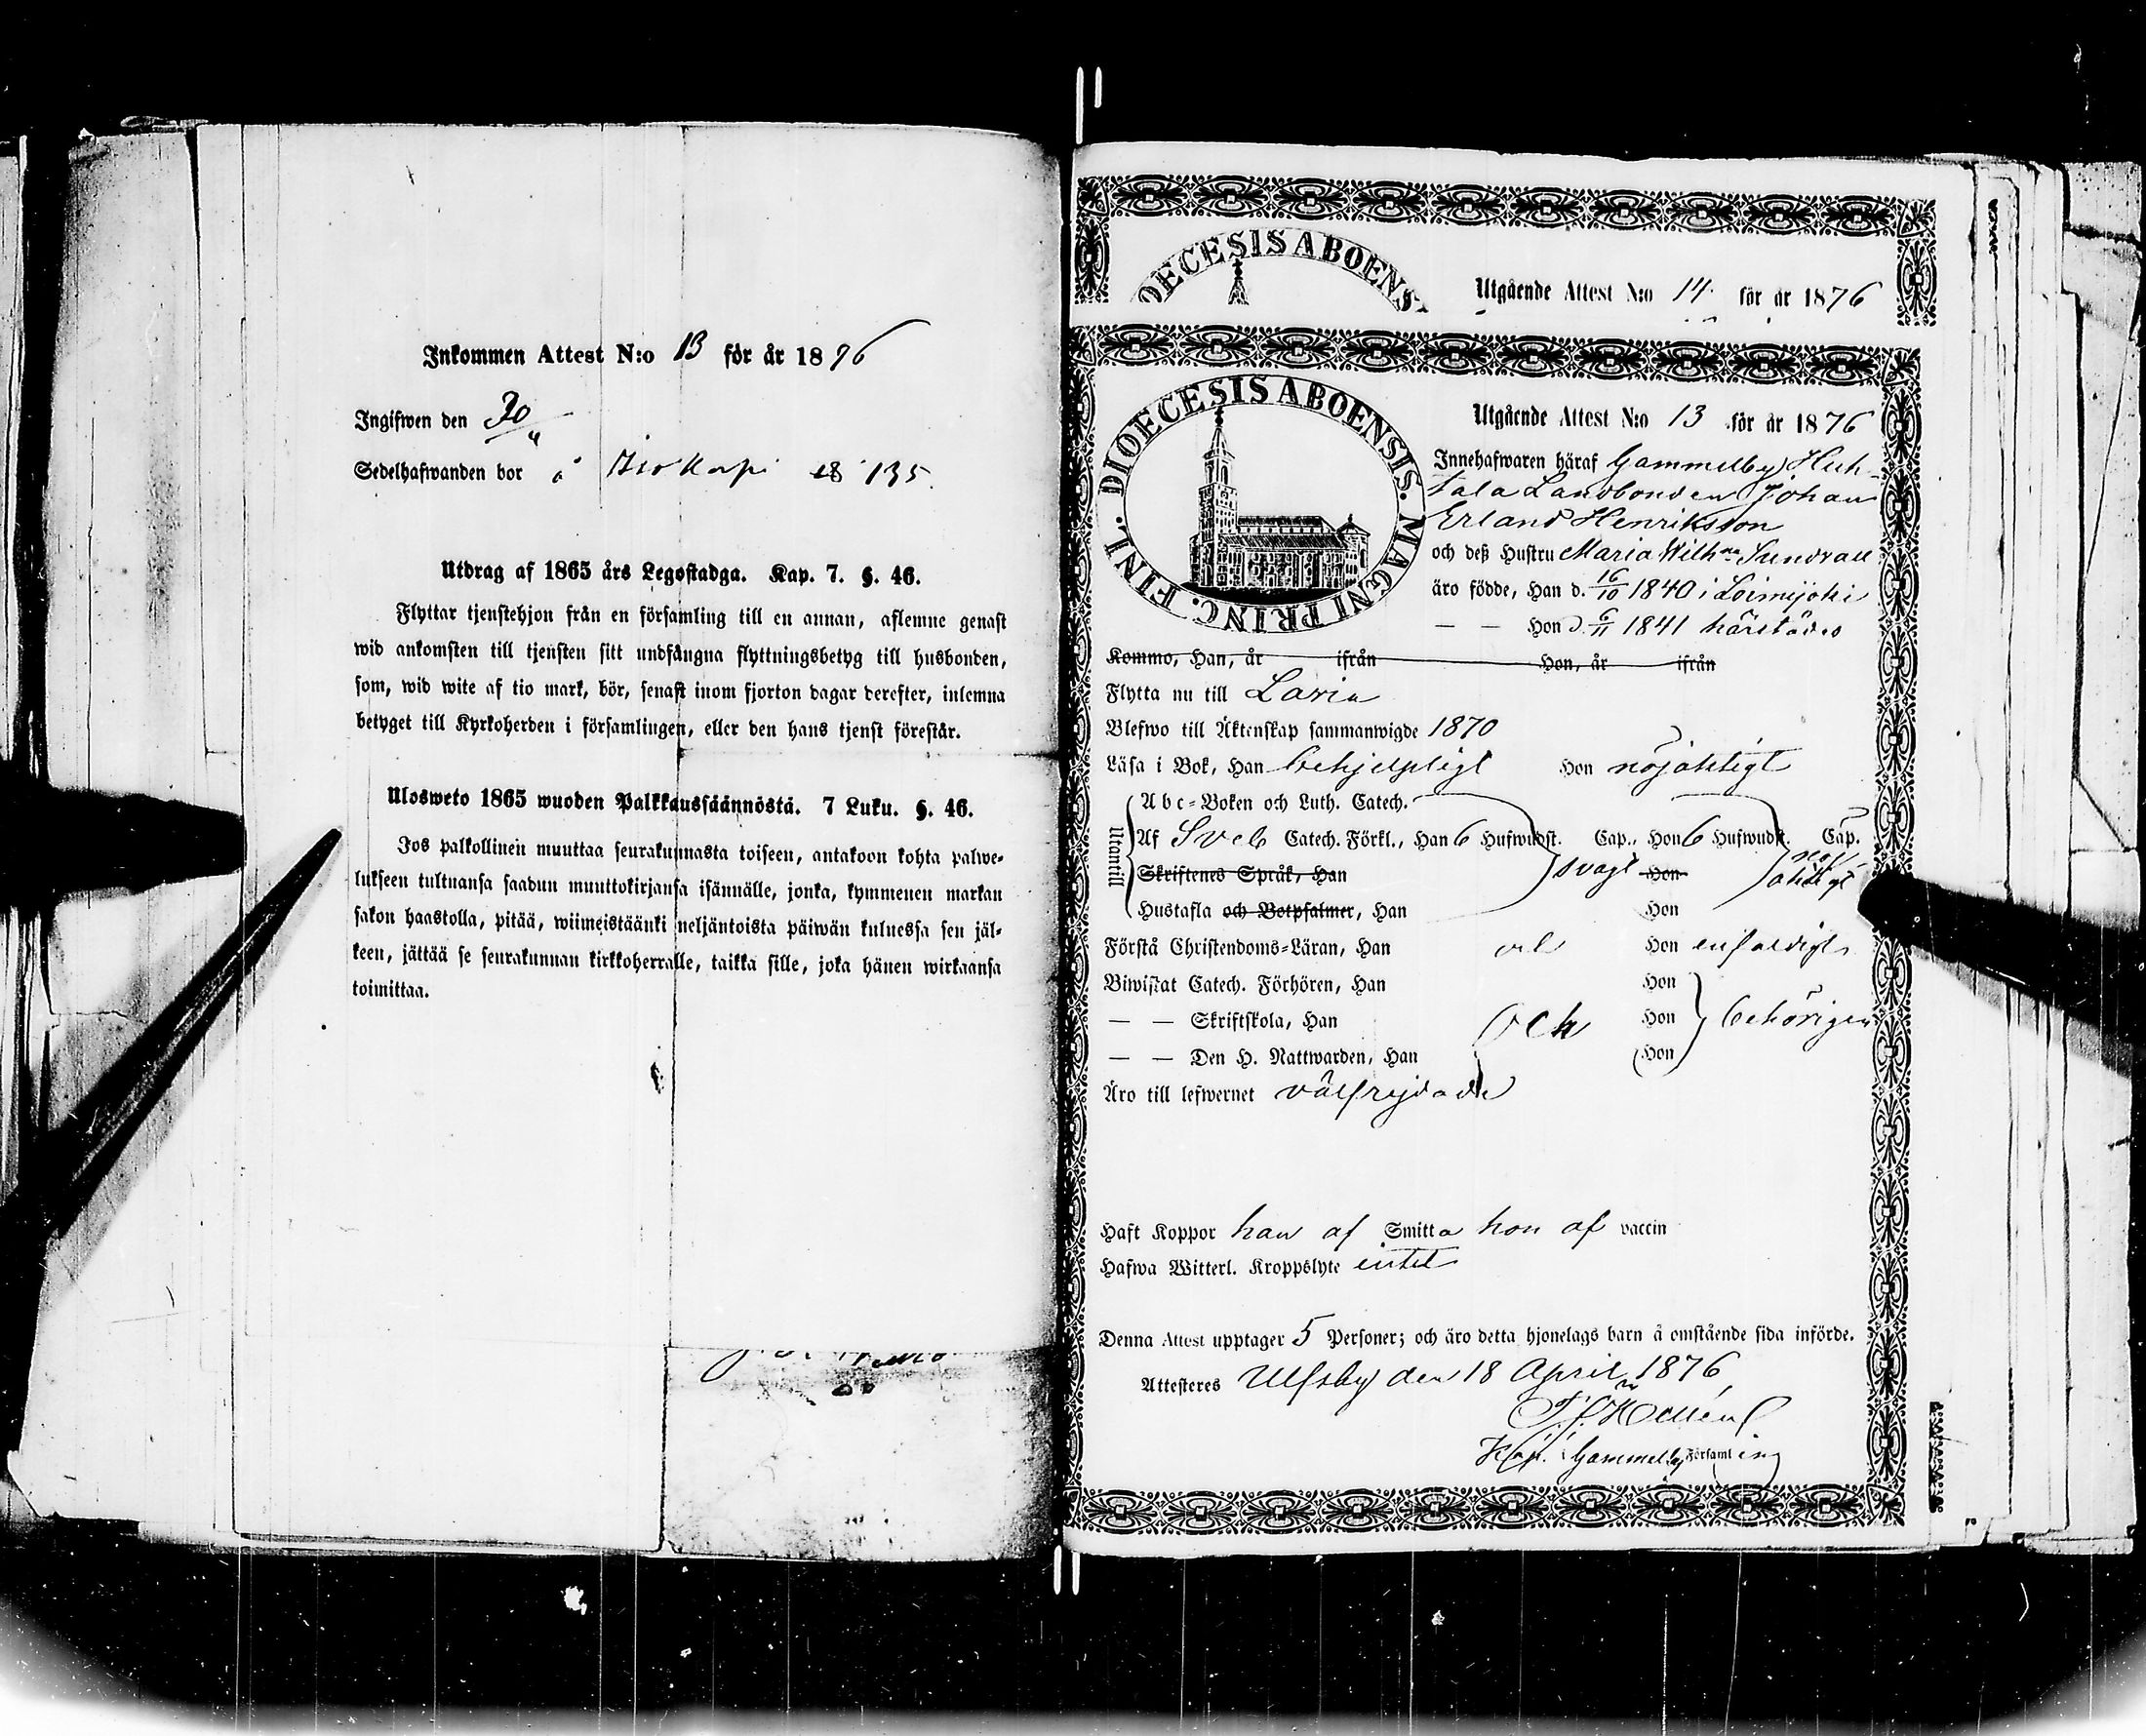 Inkommen Attest N:o 13 för år 1876
Ingifwen den 30/4
Sedelhafwanden bor å Isokarpi 135
Utdrag af 1865 års Legostadga. Kap. 7. §. 46.
Flyttar tjenstehjon från en församling till en annan, aflemne genast
wid ankomsten till tjensten sitt undfångna flyttningsbetyg till husbonden,
som, wid wite af tio mark, bör, senast inom fjorton dagar derefter, inlemna
betyget till Kyrkoherden i församlingen, eller den hans tjenst förestår.
Uloswето 1865 wuoden Palkkaussäännöstä. 7 Luku. §. 46.
Jos palkollinen muuttaa seurakunnasta toiseen, antakoon kohta palwe-
lukseen tultuansa saadun muuttokirjansa isännälle, jonka, kymmenen markan
sakon haastolla, pitää, wiimeistäänki neljäntoista päiwän kuluessa sen jäl-
keen, jättää se seurakunnan kirkkoherralle, taikka sille, joka hänen wirkaansa
toimittaa.
DIOECESIS ABOENS
Utgående Attest N:o 14 för år 1876
DIOECESIS ABOENSIS. MAGNI PRINC. FINL.
Utgående Attest N:o 13 för år 1876
Innehafwaren häraf Gammelby Huh-
tala Landbonden Johan
Erland Henriksson
och deß Hustru Maria Wilh:na Sundvall
äro födde, Han d. 16/10 1840 i Loimijoki
— — Hon d. 6/11 1841 härstädes
Kommo, Han, år ifrån Hon, år ifrån
Flytta nu till Lavia
Blefwo till Äktenskap sammanwigde 1870
Läsa i Bok, Han behjelpligt Hon nöjaktigt
Utantill
Abc-Boken och Luth. Catech.
Af Sveb Catech. Förkl., Han 6 Hufwudst. Cap., Hon 6 Hufwudst. Cap.
Skriftenes Språk, Han svagt Hon nöjaktigt
Hustafla och Botpsalmer, Han Hon
Förstå Christendoms-Läran, Han och Hon enfaldigt
Biwistat Catech. Förhören, Han Hon
— — Skriftskola, Han och Hon behörigen
— — Den H. Nattwarden, Han Hon
Äro till lefwernet välfrejdade
Haft Koppor han af Smitta hon af vaccin
Hafwa Witterl. Kroppslyte intet
Denna Attest upptager 5 Personer; och äro detta hjonelags barn å omstående sida införde.
Attesteres Ulfsby den 18 April 1876
Kap. i Gammelby Församling